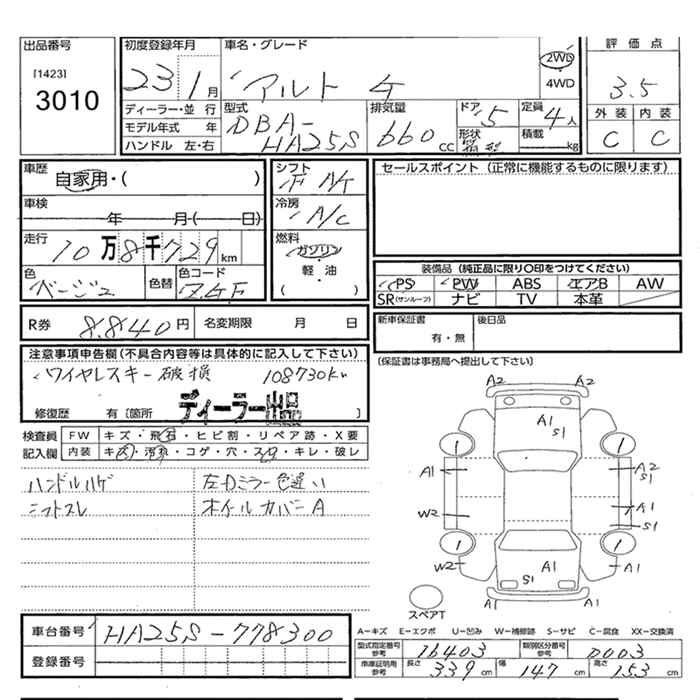 出品番号
[1423]
3010
初度登録年月
23 1月
車名・グレード
アルト
2WD
4WD
評価点
3.5
外装 内装
C C
ディーラー・並行
モデル年式 年
ハンドル 左・右
型式
DBA-
HA25S
排気量
660 CC
ドア 5
形状
定員 4人
積載 kg
車歴
自家用・( )
車検
年 月(ー 日)
走行
10万8千729km
色
ベージュ
色替
色コード
ZGF
シフト
冷房
A/C
燃料
ガソリン
・
軽・油
( )
セールスポイント(正常に機能するものに限ります)
装備品(純正品に限り〇印をつけてください)
PS PW ABS エアB AW
SR(サンルーフ) ナビ TV 本革
R券 8.840円 名変期限 月 日
新車保証書
有・無
後日品
(保証書は事務局へ提出して下さい)
注意事項申告欄(不具合内容等は具体的に記入して下さい)
ワイヤレスキー破損 108730km
修復歴 有〔箇所 ディーラー出品 〕
検査員
記入欄
FW キズ・飛石・ヒビ割・リペア跡・X要
内装 キズ・汚れ・コゲ・穴・スレ・キレ・破レ
ハンドルハゲ 左Dミラー色違い
シフトスレ ホイルカバーA
A2 A2
A1
S1
1 1
A1 A2
S1
W2 A1
S1
1 1
W2 A1
A1
S1
A1 A1
スペアT
A−キズ E−エクボ U−凹み W−補修跡 S−サビ C−腐食 XX−交換済
車台番号 HA25S-778300
登録番号
型式指定番号
参考
16403
類別区分番号
参考
0003
車庫証明用
参考
長さ 339cm 幅 147cm 高さ 153cm